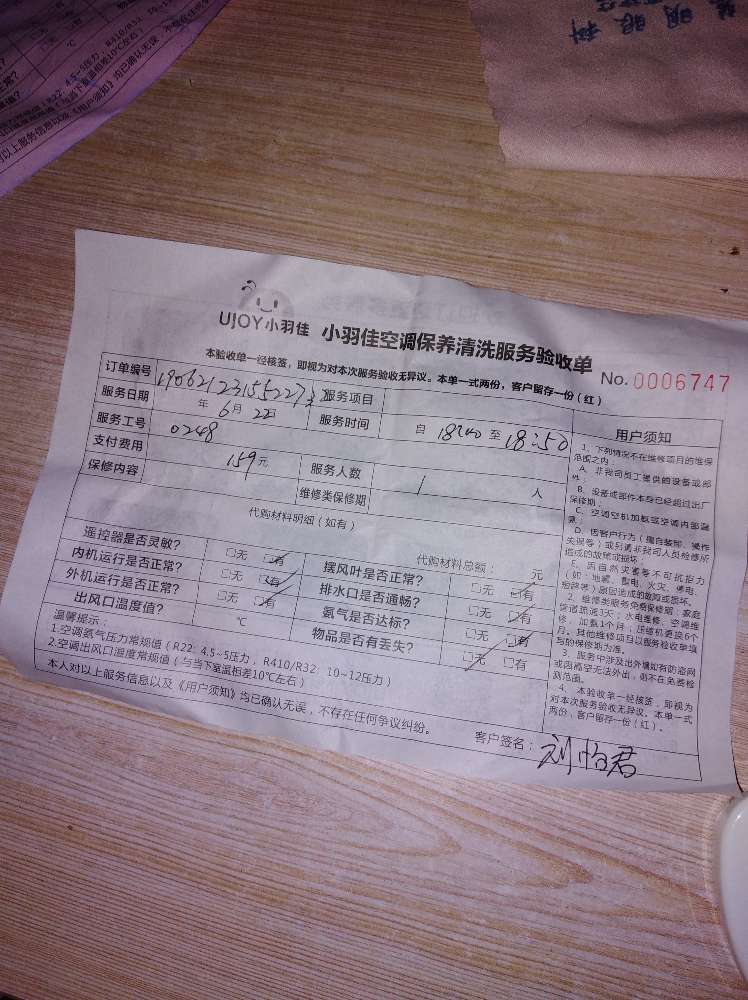 明眼科
UJOY小羽佳 小羽佳空调保养清洗服务验收单
本验收单一经核签，即视为对本次服务验收无异议。本单一式两份，客户留存一份（红）
No. 0006747
订单编号 服务项目
服务日期 年 6月 22日 服务时间 自 18:00 至 18:50
服务工号 0248
支付费用 159元 服务人数 1 人
保修内容 维修类保修期
代购材料明细（如有）
代购材料总额： 元
遥控器是否灵敏？ □无 □有 摆风叶是否正常？ □无 □有
内机运行是否正常？ □无 □有 排水口是否通畅？ □无 □有
外机运行是否正常？ □无 □有 氨气是否达标？ □无 □有
出风口温度值？ ℃ 物品是否有丢失？ □无 □有
温馨提示：
1.空调氨气压力常规值（R22：4.5~5压力，R410/R32：10~12压力）
2.空调出风口温度常规值（与当下室温相差10℃左右）
本人对以上服务信息以及《用户须知》均已确认无误，不存在任何争议纠纷。
客户签名：刘怡君
用户须知
1、下列情况不在维修项目的维保
范围之内：
A、非我司员工提供的设备或部
件；
B、设备或部件本身已经超过出厂
保修期；
C、空调空机加氨或空调内部漏
氨；
D、因客户行为（擅自装卸、操作
失误等）或只请非我司人员检修所
造成的故障或损坏；
E、因自然灾害等不可抗拒力
（如：地震、雷电、火灾、德电、
短路等）原因造成的故障或损坏。
2、维修类服务免费保修期：家庭
管道疏通3天；水电维修、空调维
修、加氨1个月；压缩机更换6个
月。其他维修项目以服务验收单填
写的保修期为准。
3、服务中涉及出外墙如有防盗网
或因高空无法外出，则不在免费检
测范围。
4、本验收单一经核签，即视为
对本次服务验收无异议。本单一式
两份，客户留存一份（红）。